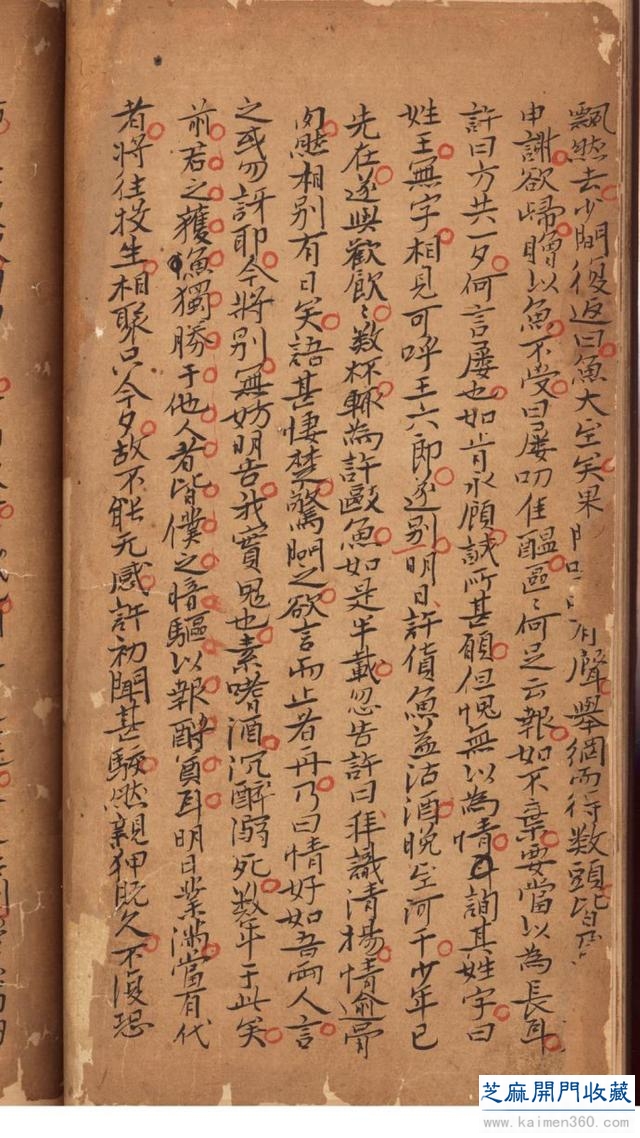 飄然去少閒復返曰魚大至矣果聞有聲舉網而得数頭皆
申謝欲歸贈以魚不受曰屢叨佳醖區〻何足云報如不棄要當以為長耳
許曰方共一夕何言屢也如肯永顧誠所甚願但愧無以為情詢其姓字曰
姓王無字相見可呼王六郎遂别明日許貨魚益沽酒晚至河干少年已
先在遂與歡飲〻数杯輒為許敺魚如是半載忽告許曰拜識清揚情逾骨
肉然相别有日矣語甚悽楚驚問之欲言而止者再乃曰情好如吾兩人言
之或勿訝耶今將别無妨明告我實鬼也素嗜酒沉醉溺死数年于此矣
前君之獲魚獨勝于他人者皆僕之暗驅以報酹奠耳明日業滿當有代
者將往投生相聚只今夕故不能无感許初聞甚駭然親狎既久不復恐
芝麻開門收藏
www.kaimen360.com